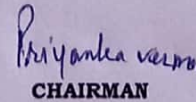 Priyanka verma
CHAIRMAN